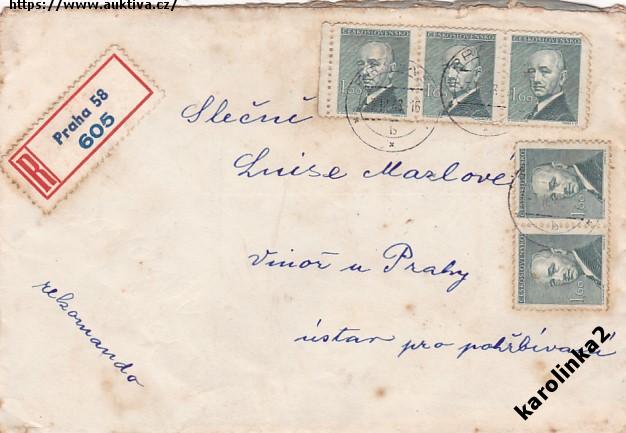 https://www.auktiva.cz/
ČESKOSLOVENSKO
ČESKOSLOVENSKO
ČESKOSLOVENSKO
1.60
1.60
1.60
R
Praha 58
605
Slečně
Luise Mazlové
Vinoř u Prahy
ústav pro pohřbívaní
rekomando
ČESKOSLOVENSKO
1.60
ČESKOSLOVENSKO
1.60
karolinka2